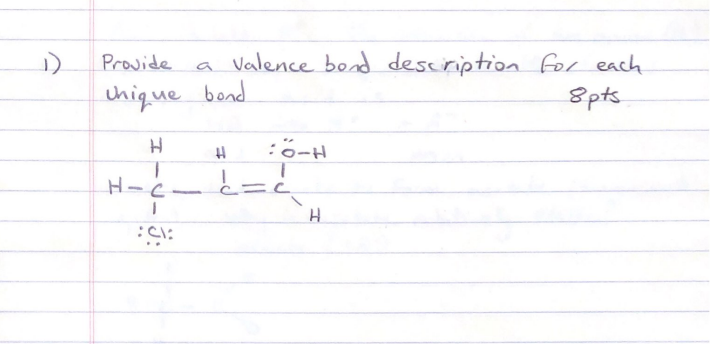 1) Provide a valence bond description for each
unique bond 8pts
H H :Ö-H
H-C-C=C
H
:Cl: